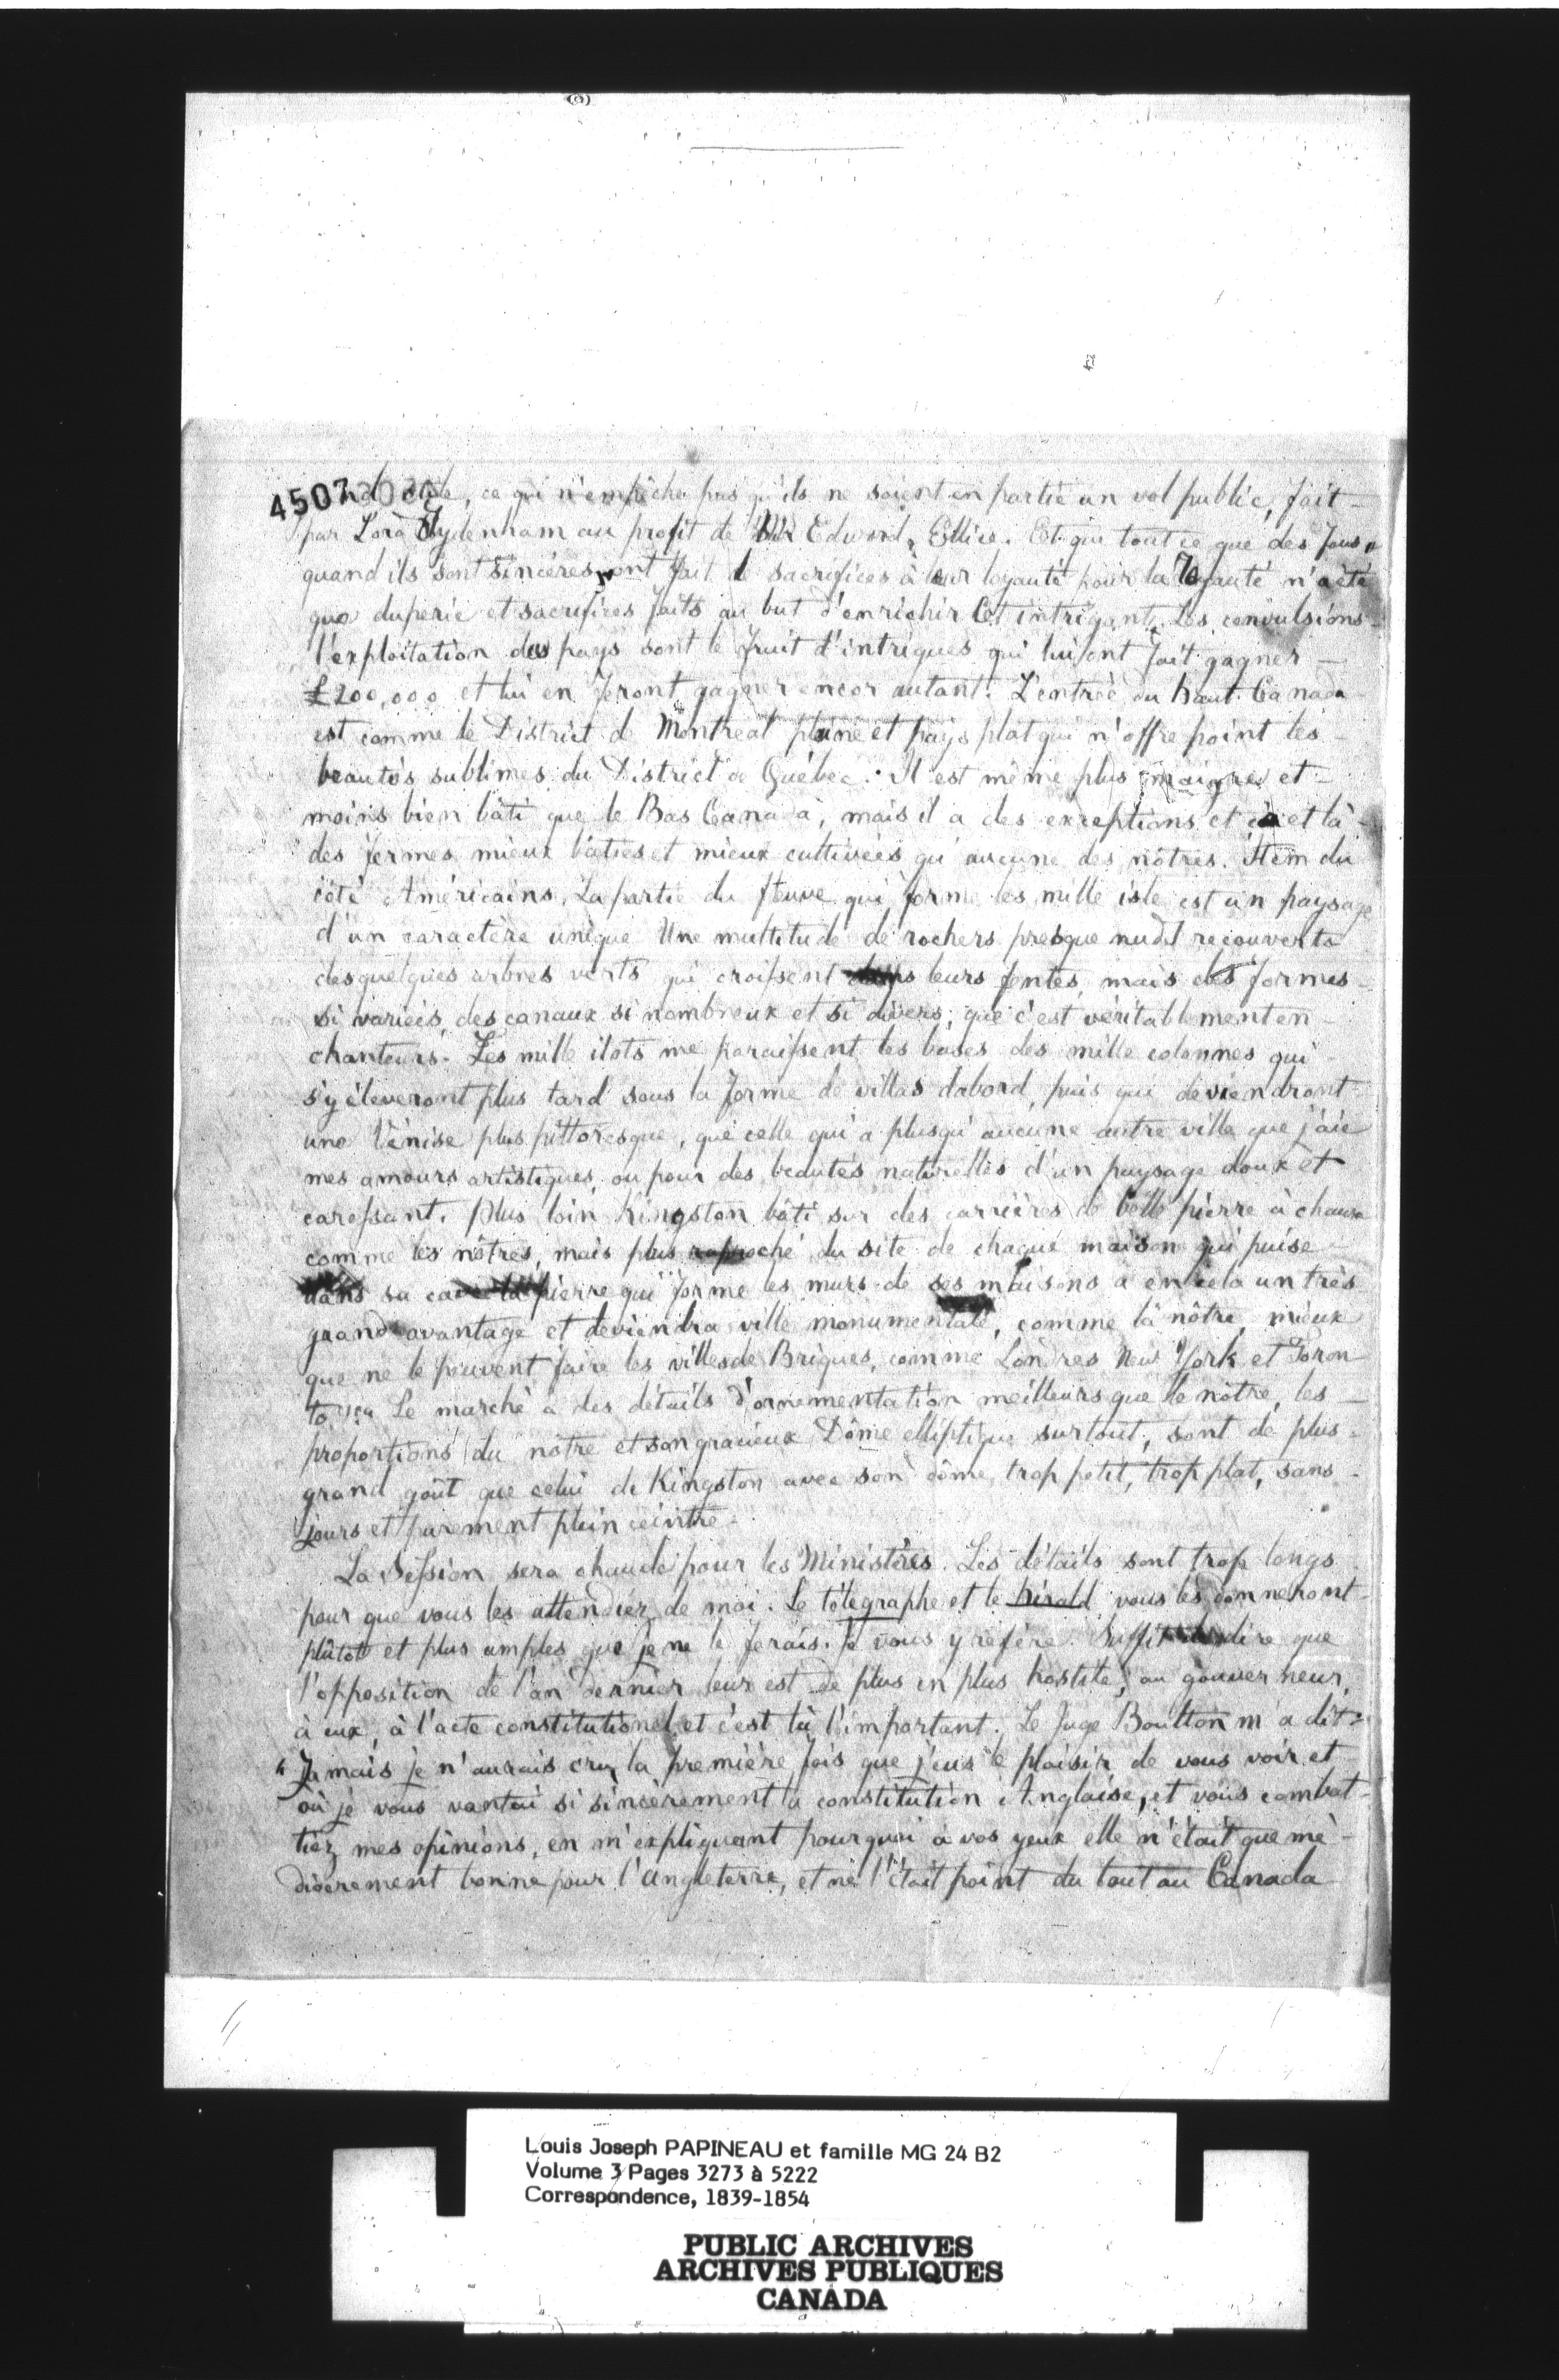 4507
, ce qui n'empêche pas qu'ils ne soient en partie un vol public, fait
par Lord Sydenham au profit de Mr Edward Ellice. Et que tout ce que des
quand ils sont sincères ont fait de sacrifices à leur loyauté pour la Royauté n'a été
que duperie et sacrifices faits au but d'enrichir Cet intrigant. Les convulsions
l'exploitation des pays sont le fruit d'intrigues qui lui ont fait gagner
£200,000 et lui en feront gagner encor autant. L'entrée du haut Canada
est comme le District de Montréal plaine et pays plat qui n'offre point les
beautés sublimes du District de Québec. Il est même plus maigre et
moins bien bâti que le Bas Canada, mais il a des exceptions et çà et là
des fermes mieux bâties et mieux cultivées qu'aucune des nôtres. Item du
côté Américains. La partie du fleuve qui forme les mille isle est un paysage
d'un caractère unique Une multitude de rochers presque nuds recouverts
des quelques arbres verts qui croissent dans leurs fentes, mais des formes
si variées, des canaux si nombreux et si divers, que c'est véritablement en-
chanteurs. Les mille ilots me paraissent les bases des mille colonnes qui
s'y éleveront plus tard sous la forme de villas dabord, puis qui deviendront
une Vénise plus pittoresque, que celle qui a plus qu'aucune autre ville que j'aie
mes amours artistiques, ou pour des beautés naturelles d'un paysage doux et
caressant. Plus loin Kingston bâti sur des carrières de belle pierre à chaux
comme les nôtres, mais plus raproché du site de chaque maison qui puise
dans sa cave la pierre qui forme les murs de ses maisons a en cela un très
grand avantage et deviendra ville monumentale, comme la nôtre, mieux
que ne le peuvent faire les villes de Briques, comme Londres New York et Toron
to. Le marché a des détails d'ornementation meilleurs que le nôtre, les
proportions du nôtre et son gracieux Dôme elliptique surtout, sont de plus
grand goût que celui de Kingston avec son dôme, trop petit, trop plat, sans
jours et purement plein ceintre.
La Session sera chaude pour les Ministères. Les détails sont trop longs
pour que vous les attendiez de moi. Le télegraphe et le hérald vous les donneront
plûtôt et plus amples que je ne le ferais. Je vous y réfère. Suffit de dire que
l'opposition de l'an dernier leur est de plus en plus hostile, au gouverneur,
à eux, à l'acte constitutionel et c'est là l'important. Le Juge Boulton m'a dit:
"Jamais je n'aurais cru, la première fois que j'eus le plaisir de vous voir et
où je vous vantai si sincèrement la constitution Anglaise, et vous combat-
tiez mes opinions, en m'expliquant pourquoi à vos yeux elle n'était que mé-
diocrement bonne pour l'Angleterre, et ne l'était point du tout au Canada
Louis Joseph PAPINEAU et famille MG 24 B2
Volume 3 Pages 3273 à 5222
Correspondence, 1839-1854
PUBLIC ARCHIVES
ARCHIVES PUBLIQUES
CANADA